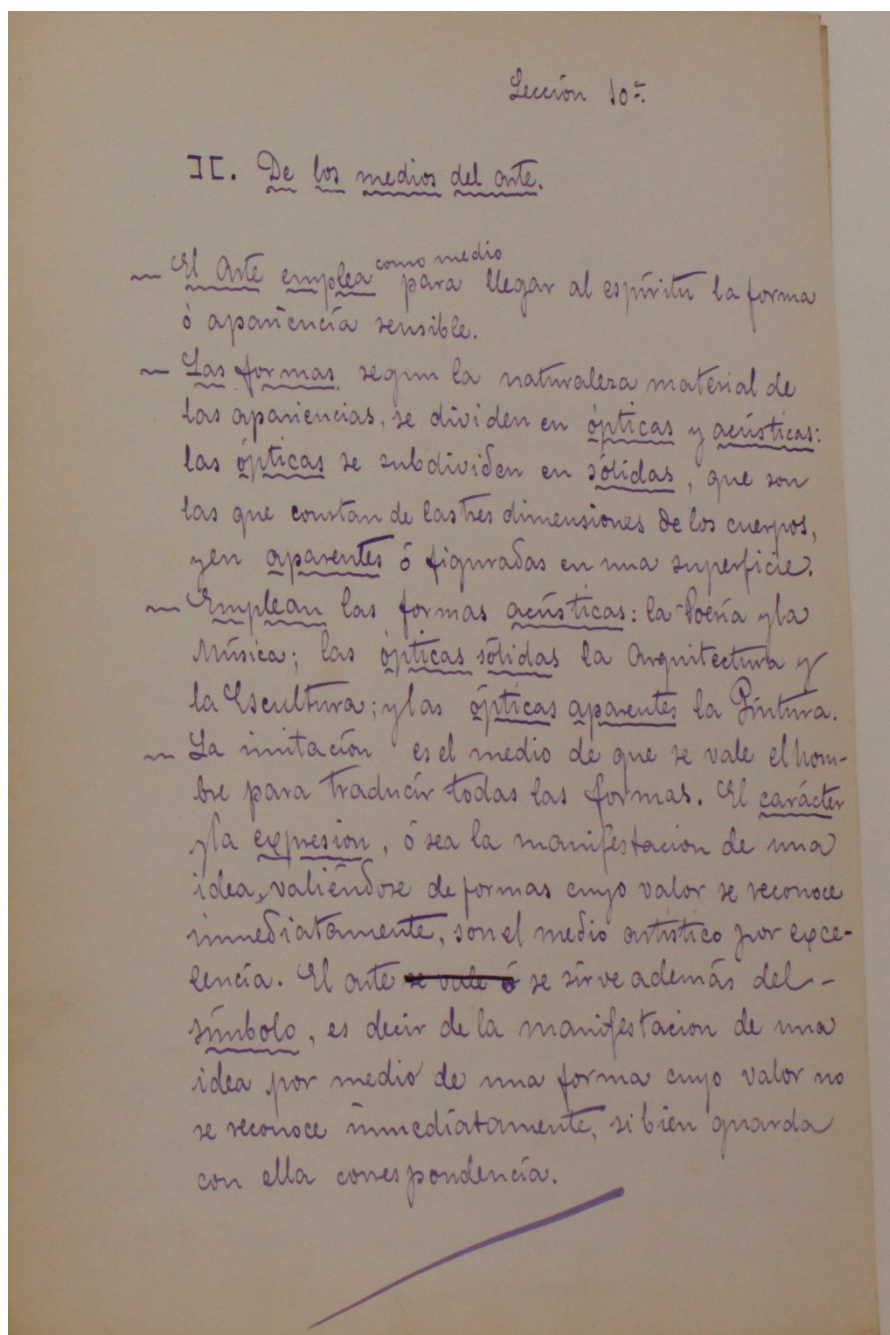 Lección 10ª
II. De los medios del arte.
— El Arte emplea como medio para llegar al espíritu la forma
ó apariencia sensible.
— Las formas segun la naturaleza material de
las apariencias, se dividen en ópticas y acústicas:
las ópticas se subdividen en sólidas, que son
las que constan de las tres dimensiones de los cuerpos,
y en aparentes ó figuradas en una superficie.
— Emplean las formas acústicas: la Poesía y la
Música; las ópticas sólidas la Arquitectura y
la Escultura; y las ópticas aparentes la Pintura.
— La imitación es el medio de que se vale el hom-
bre para traducir todas las formas. El carácter
y la expresion, ó sea la manifestacion de una
idea, valiéndose de formas cuyo valor se reconoce
inmediatamente, son el medio artístico por exce-
lencia. El arte se vale ó se sirve además del -
símbolo, es decir de la manifestacion de una
idea por medio de una forma cuyo valor no
se reconoce inmediatamente, si bien guarda
con ella correspondencia.